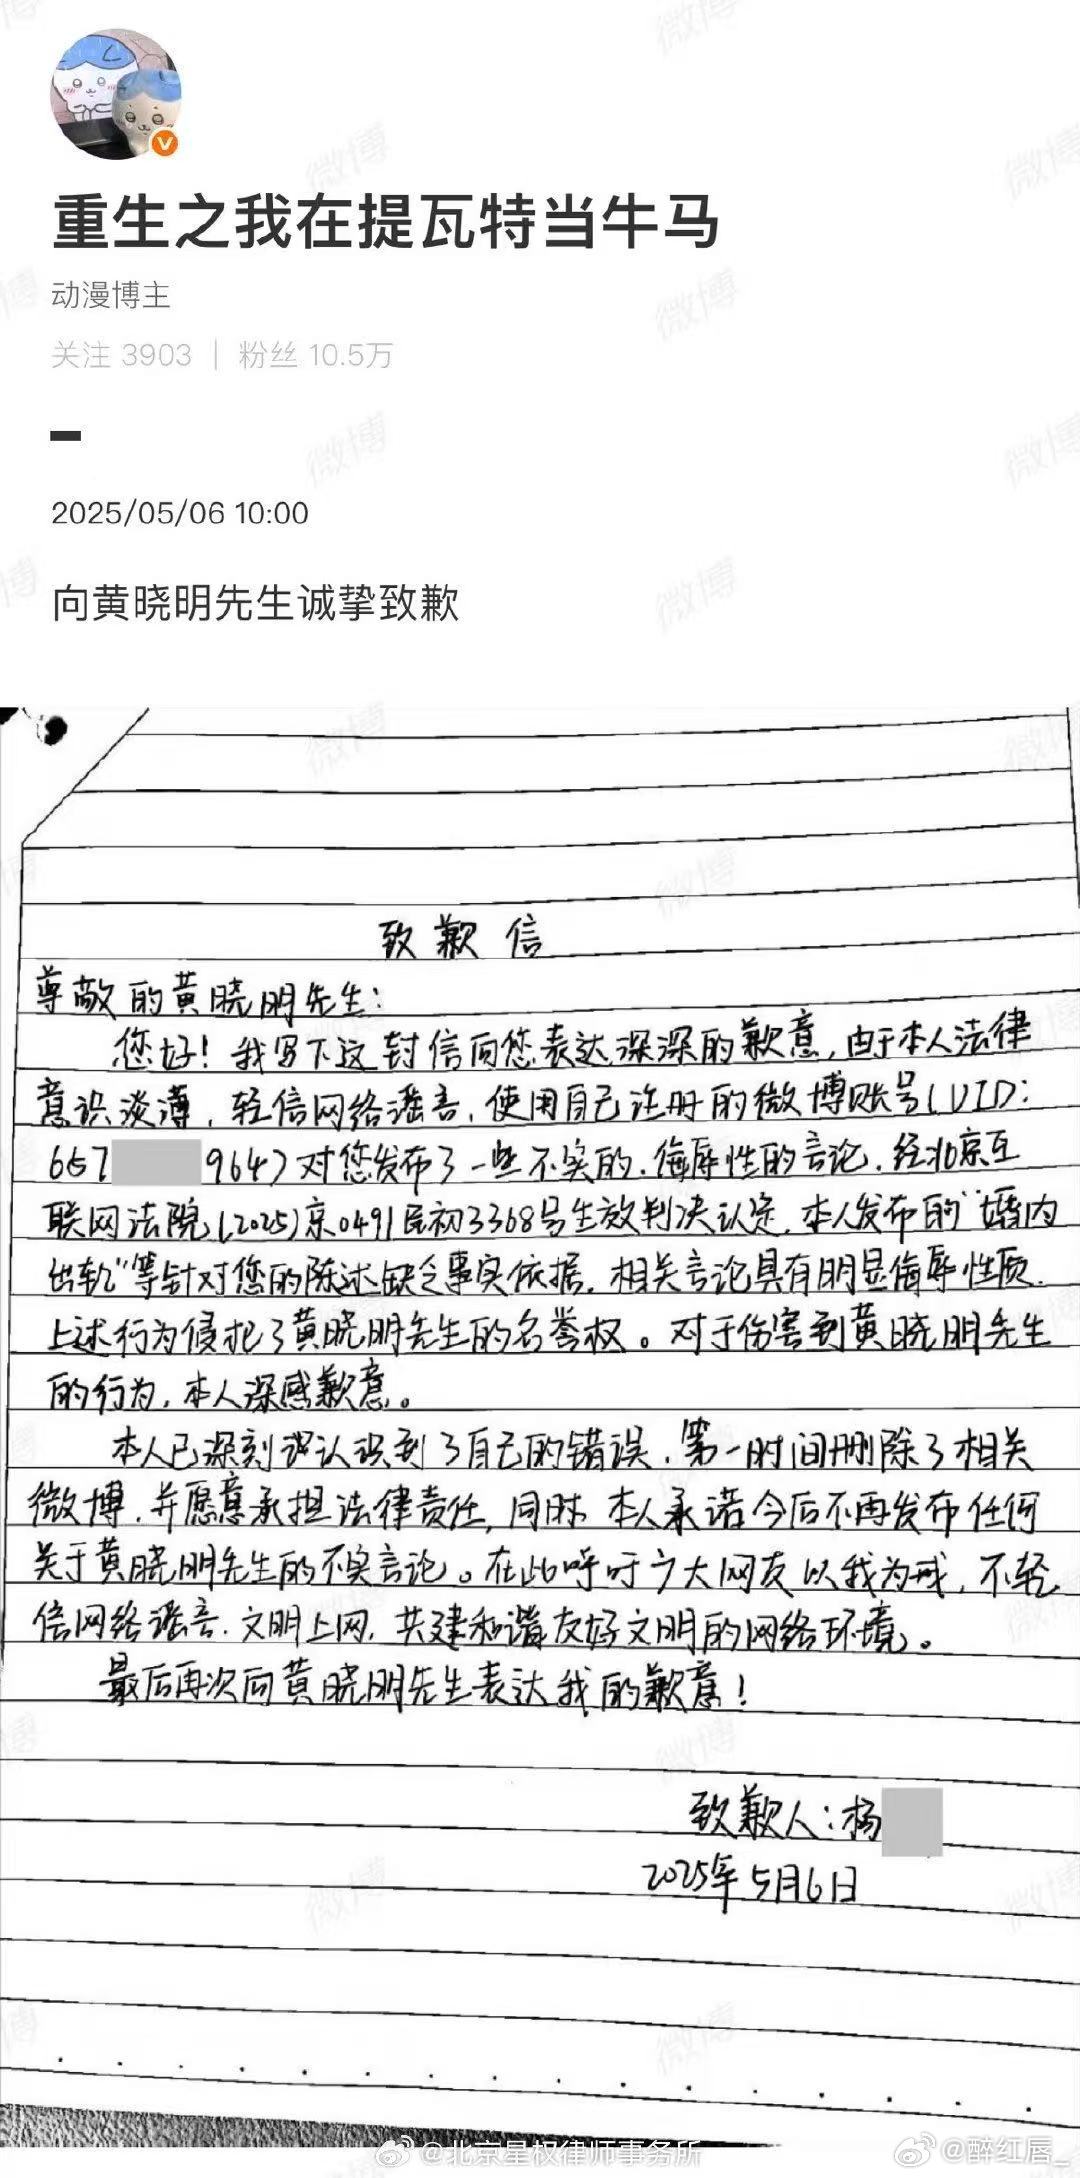 重生之我在提瓦特当牛马
动漫博主
关注 3903 | 粉丝 10.5万
2025/05/06 10:00
向黄晓明先生诚挚致歉
致歉信
尊敬的黄晓明先生：
您好！我写下这封信向您表达深深的歉意，由于本人法律
意识淡薄，轻信网络谣言，使用自己注册的微博账号（UID：
657 9647）对您发布了一些不实的、侮辱性的言论，经北京互
联网法院（2025）京0491民初3368号生效判决认定，本人发布的“婚内
出轨”等针对您的陈述缺乏事实依据，相关言论具有明显侮辱性质，
上述行为侵犯了黄晓明先生的名誉权。对于伤害到黄晓明先生
的行为，本人深感歉意。
本人已深刻认识到了自己的错误，第一时间删除了相关
微博，并愿意承担法律责任，同时，本人承诺今后不再发布任何
关于黄晓明先生的不实言论。在此呼吁广大网友以我为戒，不轻
信网络谣言，文明上网，共建和谐友好文明的网络环境。
最后再次向黄晓明先生表达我的歉意！
致歉人：杨
2025年5月6日
@北京星权律师事务所
@醉红唇_
微博